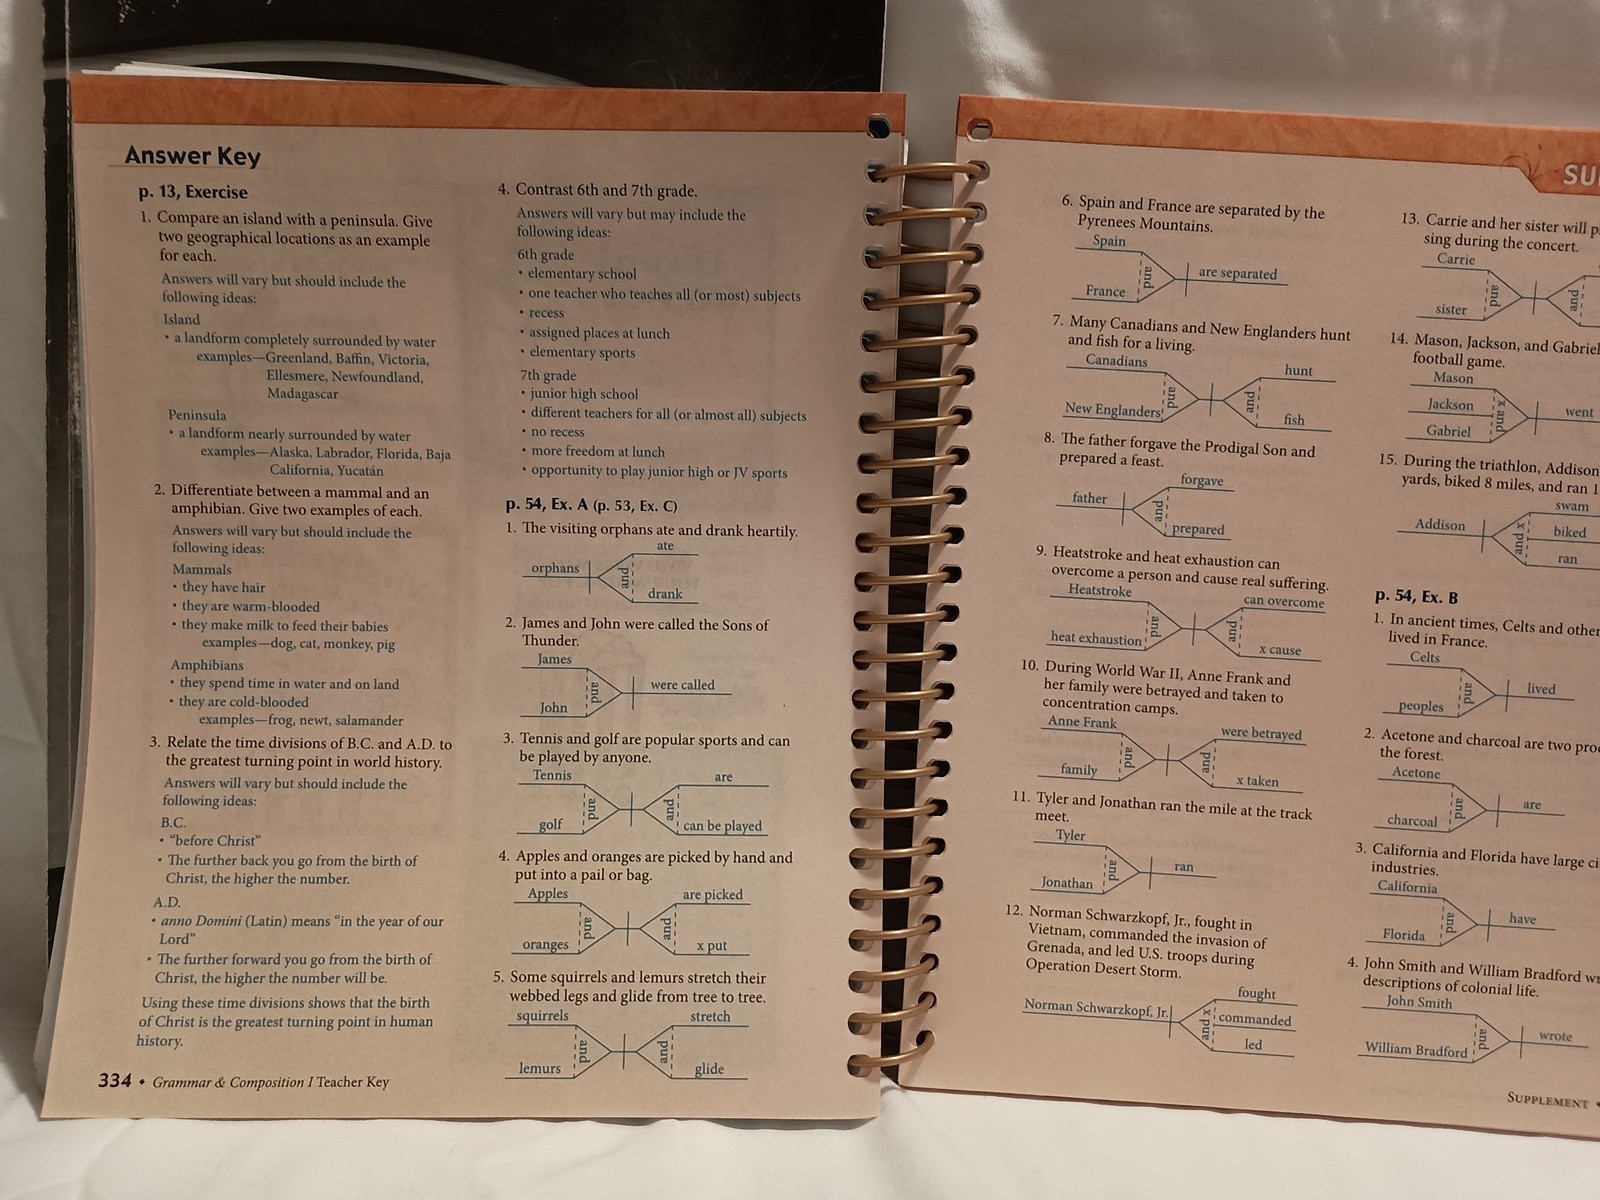 Answer Key
p. 13, Exercise
1. Compare an island with a peninsula. Give
two geographical locations as an example
for each.
Answers will vary but should include the
following ideas:
Island
• a landform completely surrounded by water
examples—Greenland, Baffin, Victoria,
Ellesmere, Newfoundland,
Madagascar
Peninsula
• a landform nearly surrounded by water
examples—Alaska, Labrador, Florida, Baja
California, Yucatán
2. Differentiate between a mammal and an
amphibian. Give two examples of each.
Answers will vary but should include the
following ideas:
Mammals
• they have hair
• they are warm-blooded
• they make milk to feed their babies
examples—dog, cat, monkey, pig
Amphibians
• they spend time in water and on land
• they are cold-blooded
examples—frog, newt, salamander
3. Relate the time divisions of B.C. and A.D. to
the greatest turning point in world history.
Answers will vary but should include the
following ideas:
B.C.
• “before Christ”
• The further back you go from the birth of
Christ, the higher the number.
A.D.
• anno Domini (Latin) means “in the year of our
Lord”
• The further forward you go from the birth of
Christ, the higher the number will be.
Using these time divisions shows that the birth
of Christ is the greatest turning point in human
history.
334 • Grammar & Composition I Teacher Key
4. Contrast 6th and 7th grade.
Answers will vary but may include the
following ideas:
6th grade
• elementary school
• one teacher who teaches all (or most) subjects
• recess
• assigned places at lunch
• elementary sports
7th grade
• junior high school
• different teachers for all (or almost all) subjects
• no recess
• more freedom at lunch
• opportunity to play junior high or JV sports
p. 54, Ex. A (p. 53, Ex. C)
1. The visiting orphans ate and drank heartily.
ate
orphans
and
drank
2. James and John were called the Sons of
Thunder.
James
and
were called
John
3. Tennis and golf are popular sports and can
be played by anyone.
Tennis are
and and
golf can be played
4. Apples and oranges are picked by hand and
put into a pail or bag.
Apples are picked
and and
oranges x put
5. Some squirrels and lemurs stretch their
webbed legs and glide from tree to tree.
squirrels stretch
and and
lemurs glide
6. Spain and France are separated by the
Pyrenees Mountains.
Spain
and are separated
France
7. Many Canadians and New Englanders hunt
and fish for a living.
Canadians hunt
and and
New Englanders fish
8. The father forgave the Prodigal Son and
prepared a feast.
forgave
father and
prepared
9. Heatstroke and heat exhaustion can
overcome a person and cause real suffering.
Heatstroke can overcome
and and
heat exhaustion x cause
10. During World War II, Anne Frank and
her family were betrayed and taken to
concentration camps.
Anne Frank were betrayed
and and
family x taken
11. Tyler and Jonathan ran the mile at the track
meet.
Tyler
and ran
Jonathan
12. Norman Schwarzkopf, Jr., fought in
Vietnam, commanded the invasion of
Grenada, and led U.S. troops during
Operation Desert Storm.
fought
Norman Schwarzkopf, Jr. and x commanded
led
SU
13. Carrie and her sister will p
sing during the concert.
Carrie
and and
sister
14. Mason, Jackson, and Gabriel
football game.
Mason
Jackson x and went
Gabriel
15. During the triathlon, Addison
yards, biked 8 miles, and ran 1
swam
Addison and x biked
ran
p. 54, Ex. B
1. In ancient times, Celts and other
lived in France.
Celts
and lived
peoples
2. Acetone and charcoal are two pro
the forest.
Acetone
and are
charcoal
3. California and Florida have large ci
industries.
California
and have
Florida
4. John Smith and William Bradford wr
descriptions of colonial life.
John Smith
and wrote
William Bradford
SUPPLEMENT •